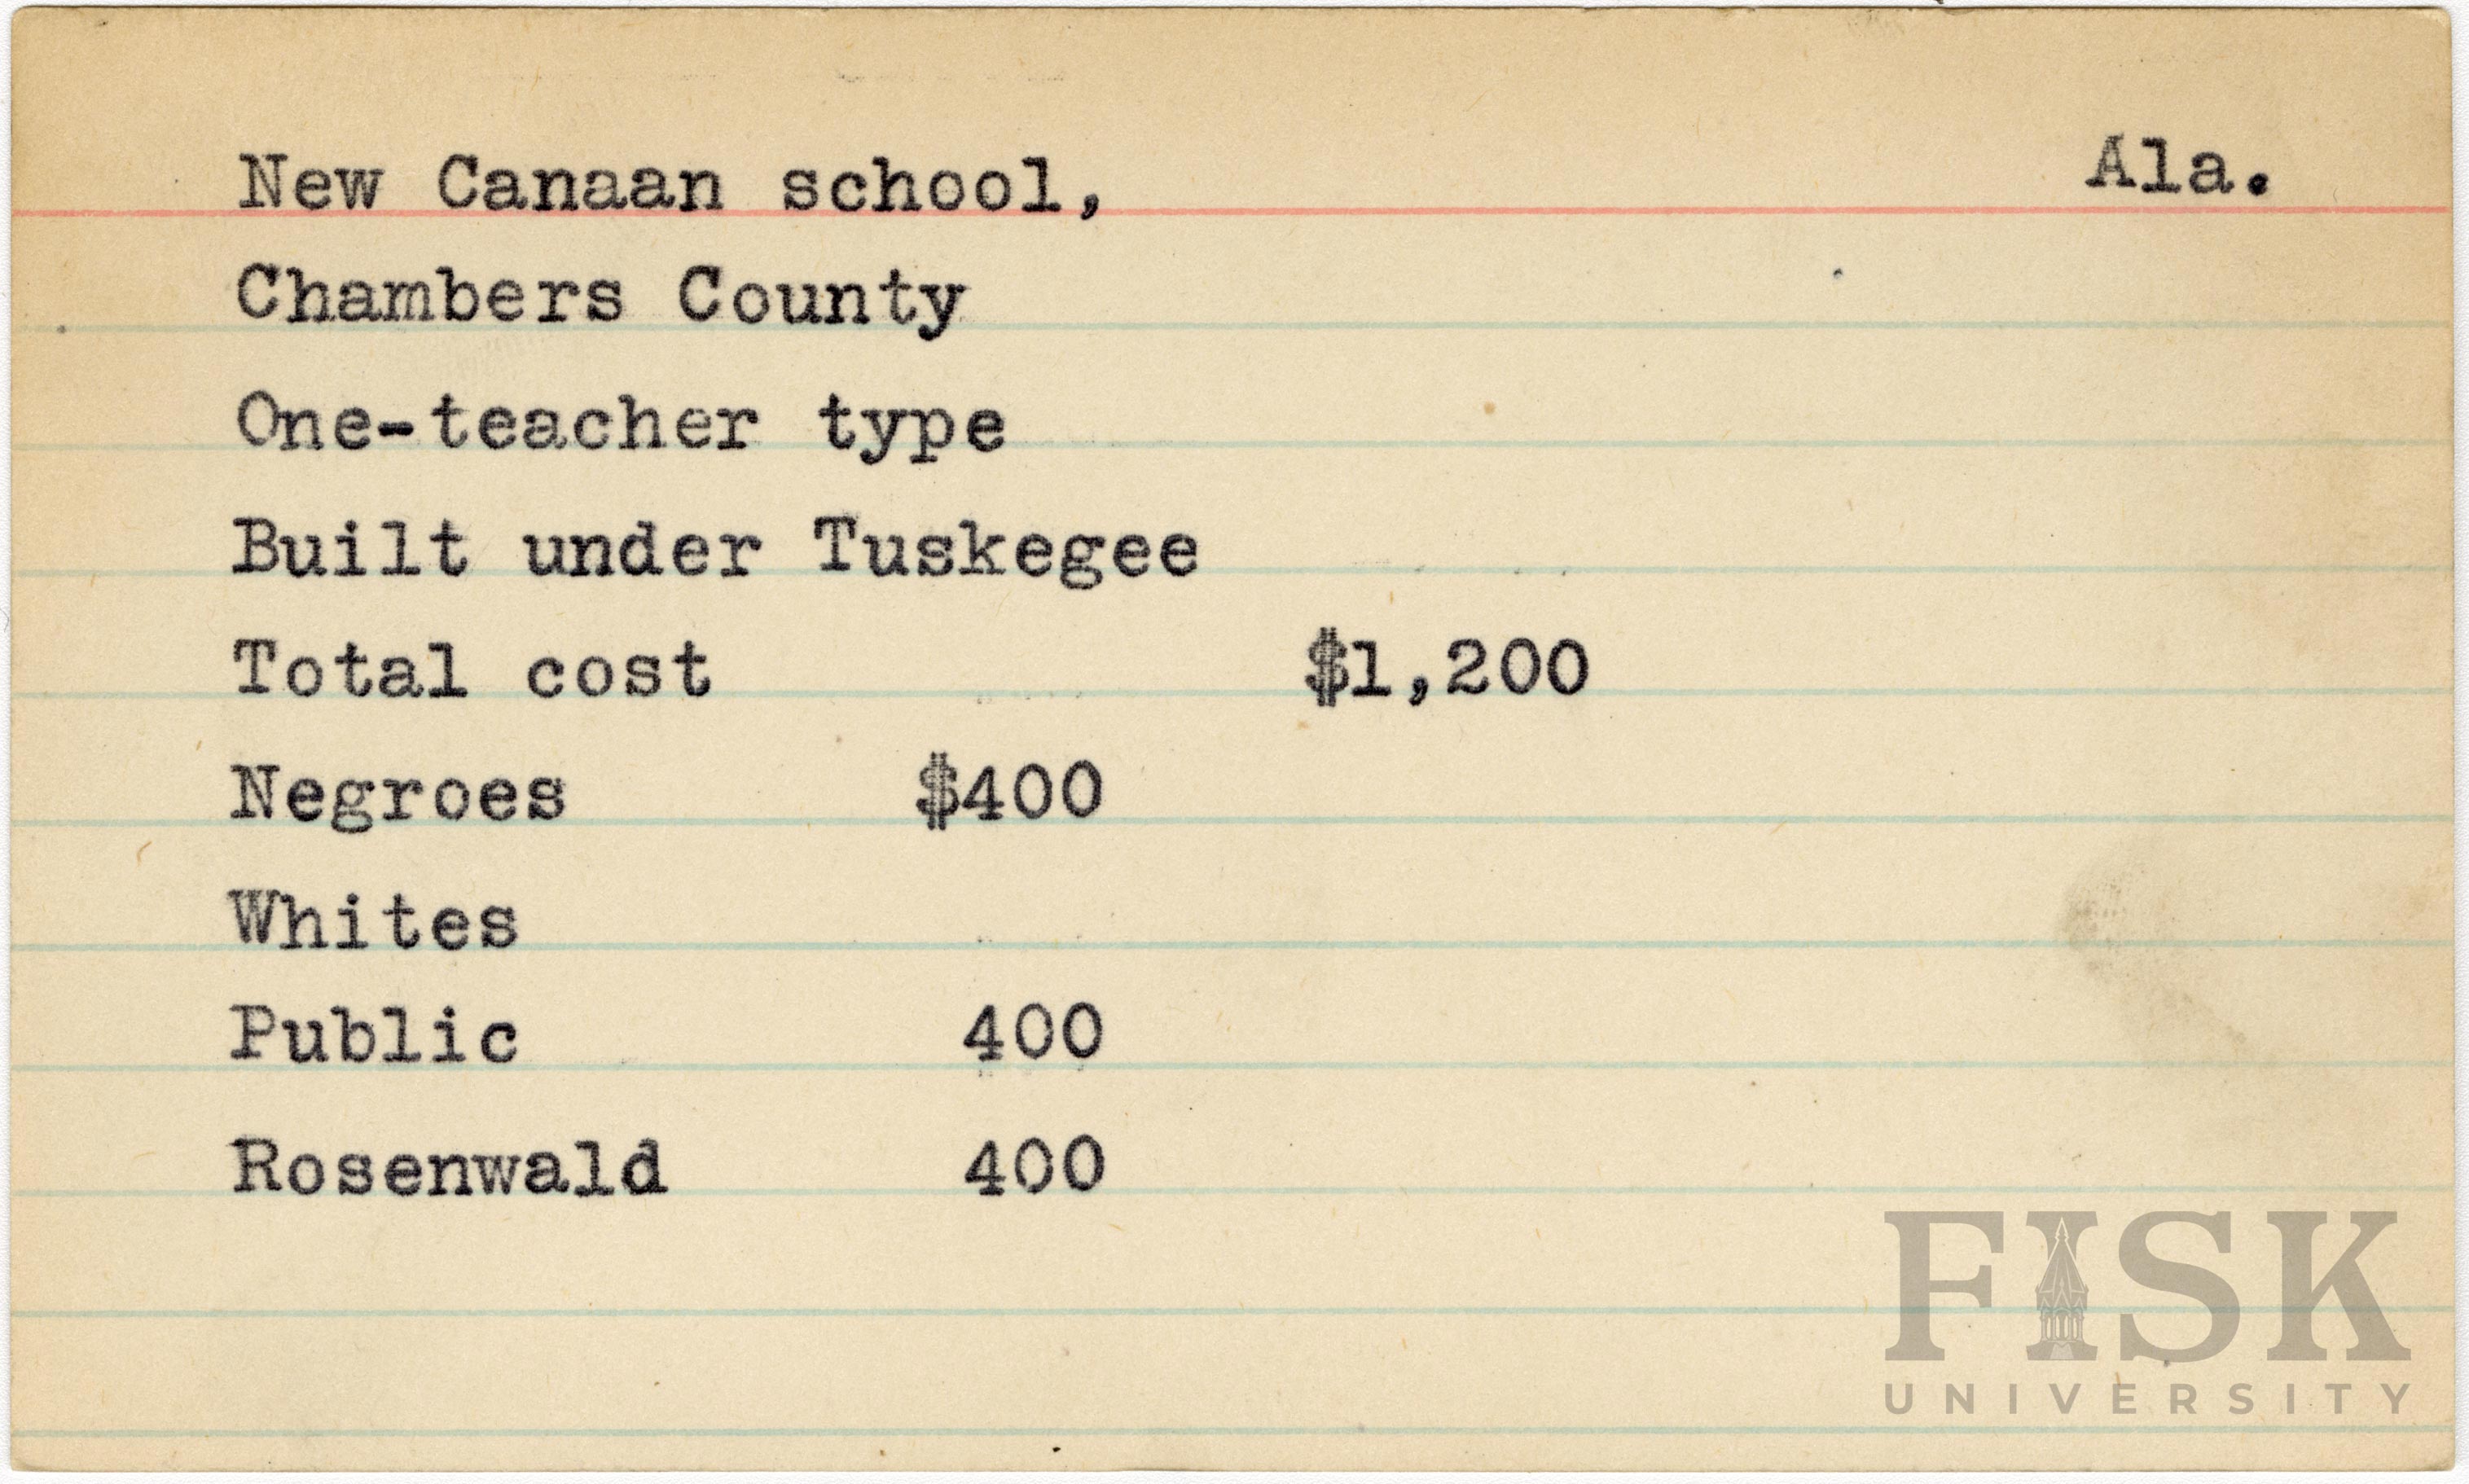 New Canaan school, Ala.
Chambers County
One-teacher type
Built under Tuskegee
Total cost $1,200
Negroes $400
Whites
Public 400
Rosenwald 400
FISK
UNIVERSITY